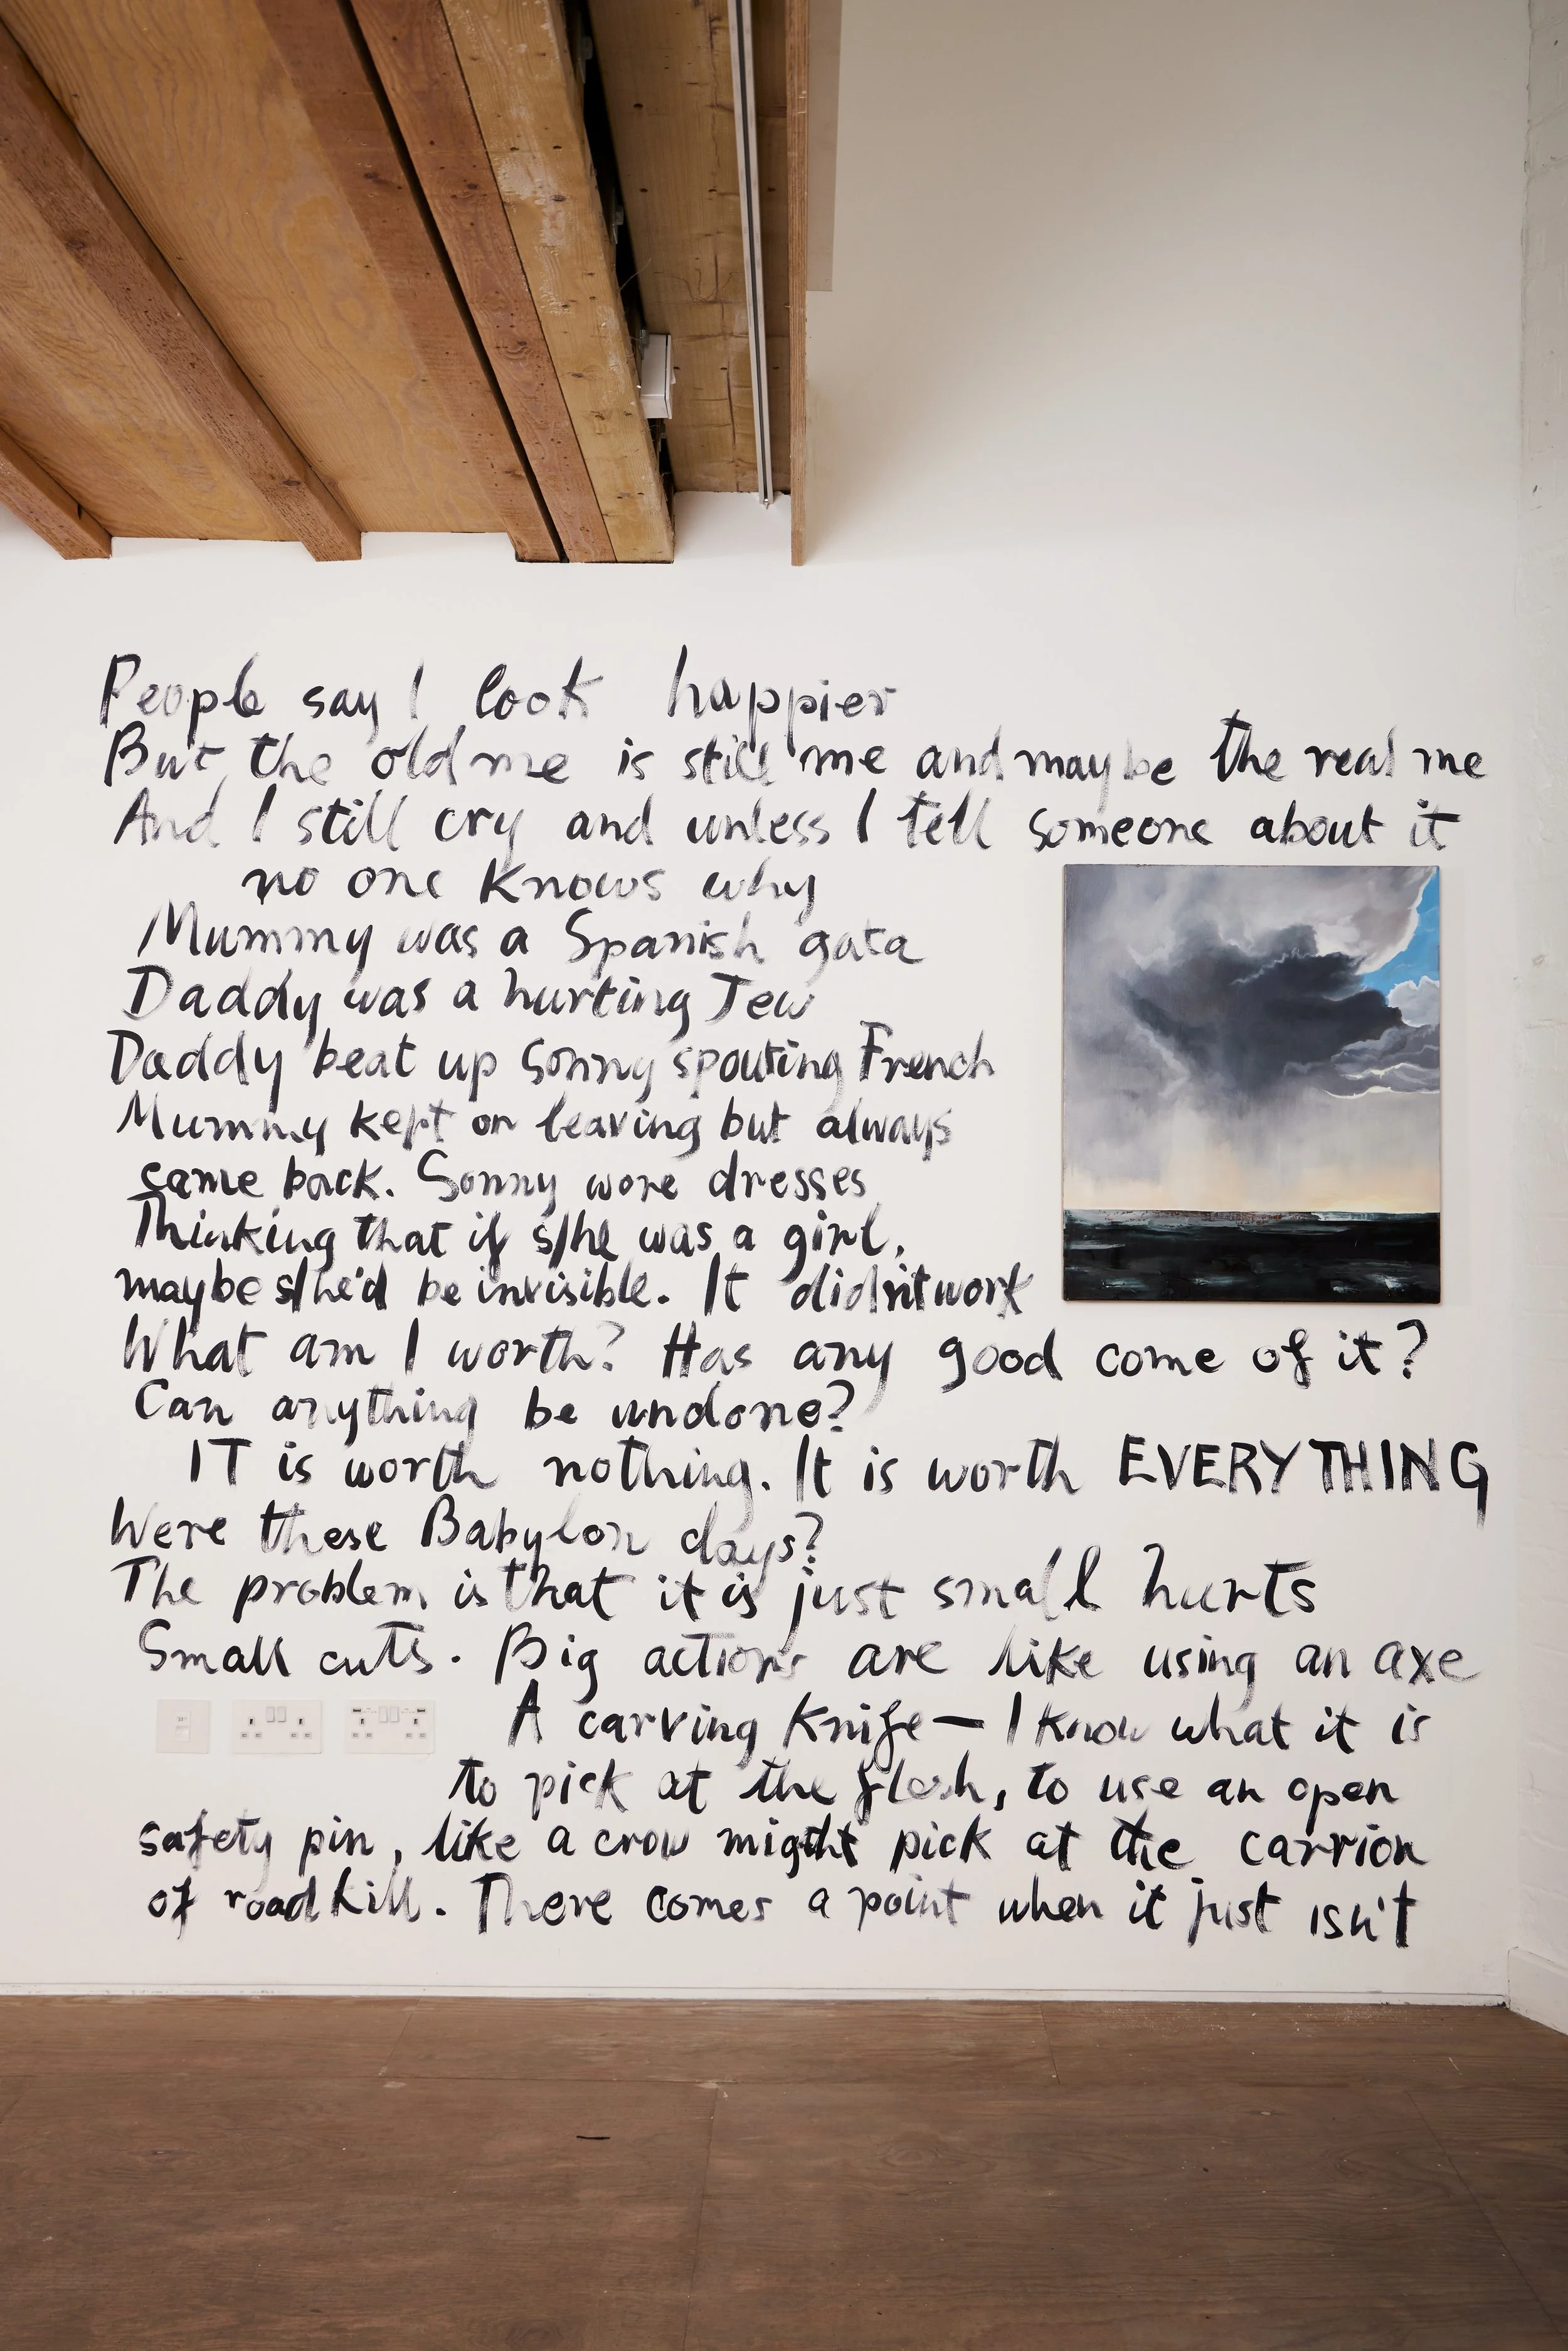 People say I look happier
But the old me is still me and maybe the real me
And I still cry and unless I tell someone about it
no one knows why
Mummy was a Spanish gata
Daddy was a hurting Jew
Daddy beat up Sonny spouting French
Mummy kept on leaving but always
came back. Sonny wore dresses
Thinking that if s/he was a girl,
maybe s/he'd be invisible. It didn't work
What am I worth? Has any good come of it?
Can anything be undone?
IT is worth nothing. It is worth EVERYTHING
Were these Babylon days?
The problem is that it is just small hurts
Small cuts. Big actions are like using an axe
A carving knife — I know what it is
to pick at the flesh, to use an open
safety pin, like a crow might pick at the carrion
of road kill. There comes a point when it just isn't